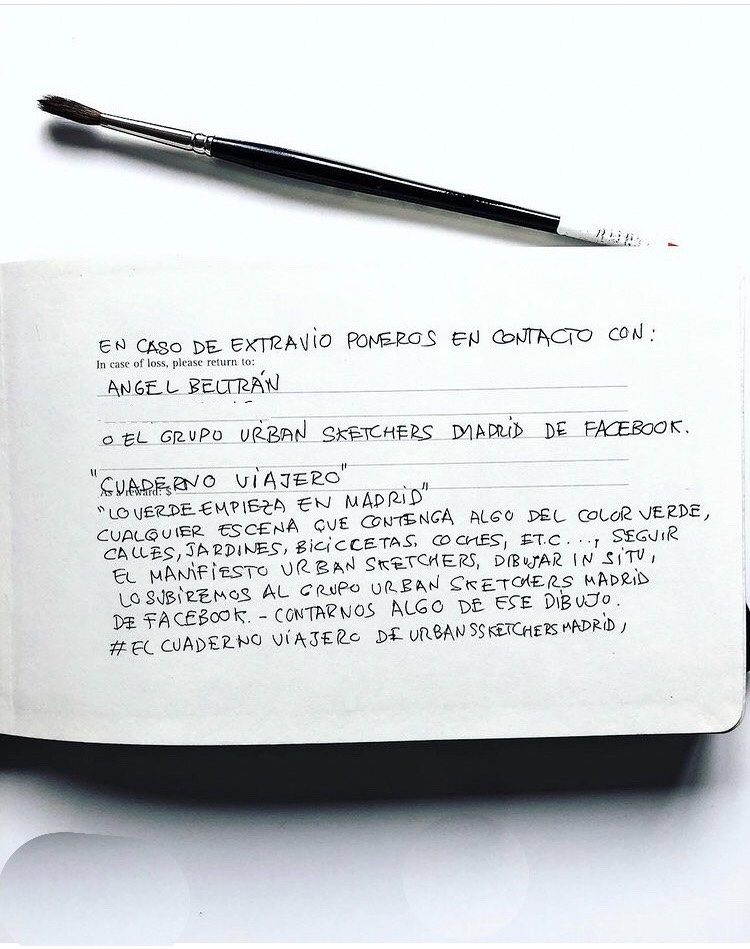 EN CASO DE EXTRAVIO PONEROS EN CONTACTO CON:
In case of loss, please return to:
ANGEL BELTRÁN
O EL GRUPO URBAN SKETCHERS MADRID DE FACEBOOK.
"CUADERNO VIAJERO"
As a reward: $
"LO VERDE EMPIEZA EN MADRID"
CUALQUIER ESCENA QUE CONTENGA ALGO DEL COLOR VERDE,
CALLES, JARDINES, BICICLETAS, COCHES, ETC..., SEGUIR
EL MANIFIESTO URBAN SKETCHERS, DIBUJAR IN SITU,
LO SUBIREMOS AL GRUPO URBAN SKETCHERS MADRID
DE FACEBOOK. - CONTARNOS ALGO DE ESE DIBUJO.
#EL CUADERNO VIAJERO DE URBANSSKETCHERSMADRID,